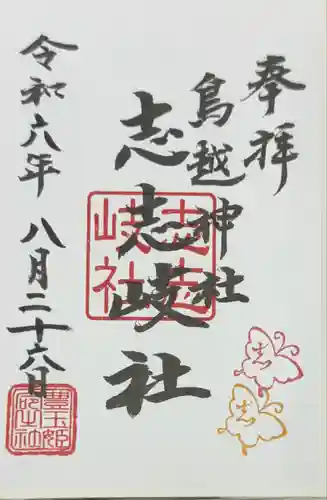 奉拝
鳥越神社
志志岐社
令和六年八月二十六日
志志岐社
豊玉姫神社
志
志